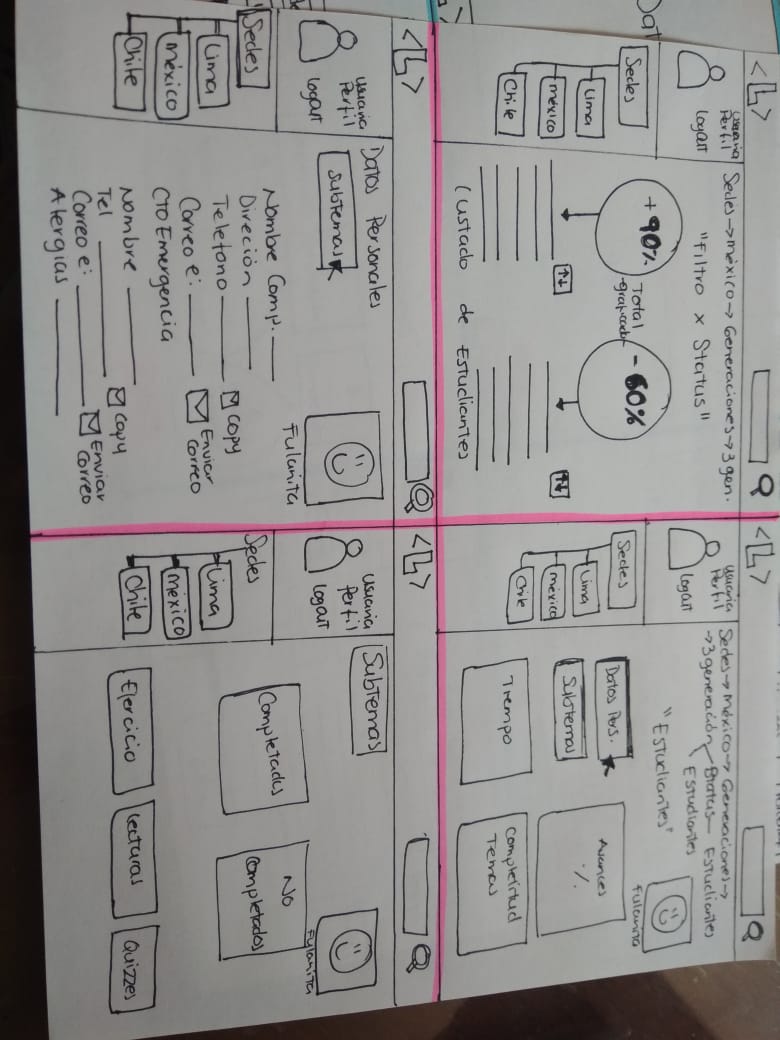 <L>
Usuaria
Perfil
Logaut
Sedes
Lima
México
Chile
Sedes → México → Generaciones → 3 gen.
"Filtro x Status"
+90%
Total
-60%
Listado de Estudiantes
<L>
Usuaria
Perfil
Logaut
Sedes
Lima
México
Chile
Sedes → México → Generaciones →
→ 3 generación
Estudiantes
Estudiantes
"Estudiantes"
Fulanita
Datos Pers.
Subtemas
Avances
%
Tiempo
Completitud
Temas
<L>
Usuaria
Perfil
Logaut
Sedes
Lima
México
Chile
Datos Personales
Subtemas
Fulanita
Nombre Comp.
Direción
Telefono copy
Correo e: Enviar
Correo
CTO Emergencia
Nombre
Tel copy
Correo e: Enviar
Correo
Alergias
<L>
Usuaria
Perfil
Logaut
Sedes
Lima
México
Chile
Subtemas
Fulanita
Completados
No
Completados
Ejercicio
Lecturas
Quizzes